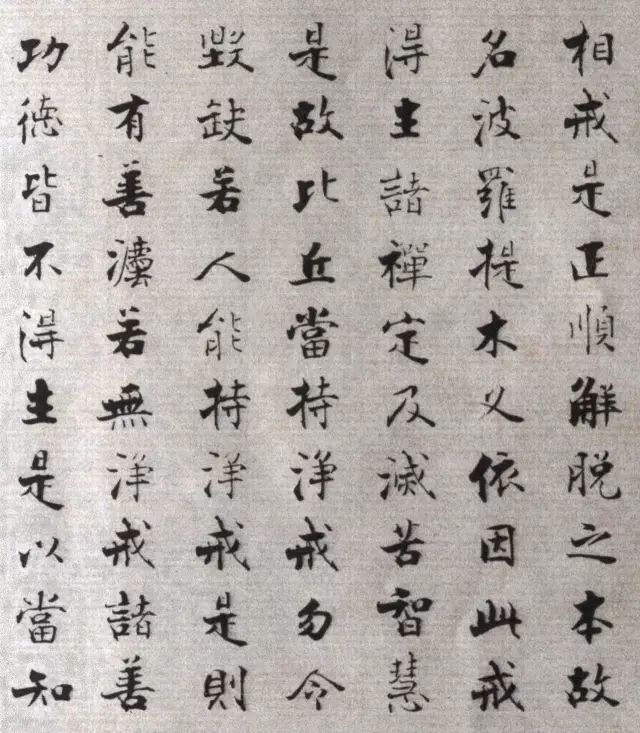 相戒是正順解脱之本故
名波羅提木义依因此戒
得生諸禪定及滅苦智慧
是故比丘當持淨戒勿令
毀缺若人能持淨戒是則
能有善灋若無淨戒諸善
功德皆不得生是以當知